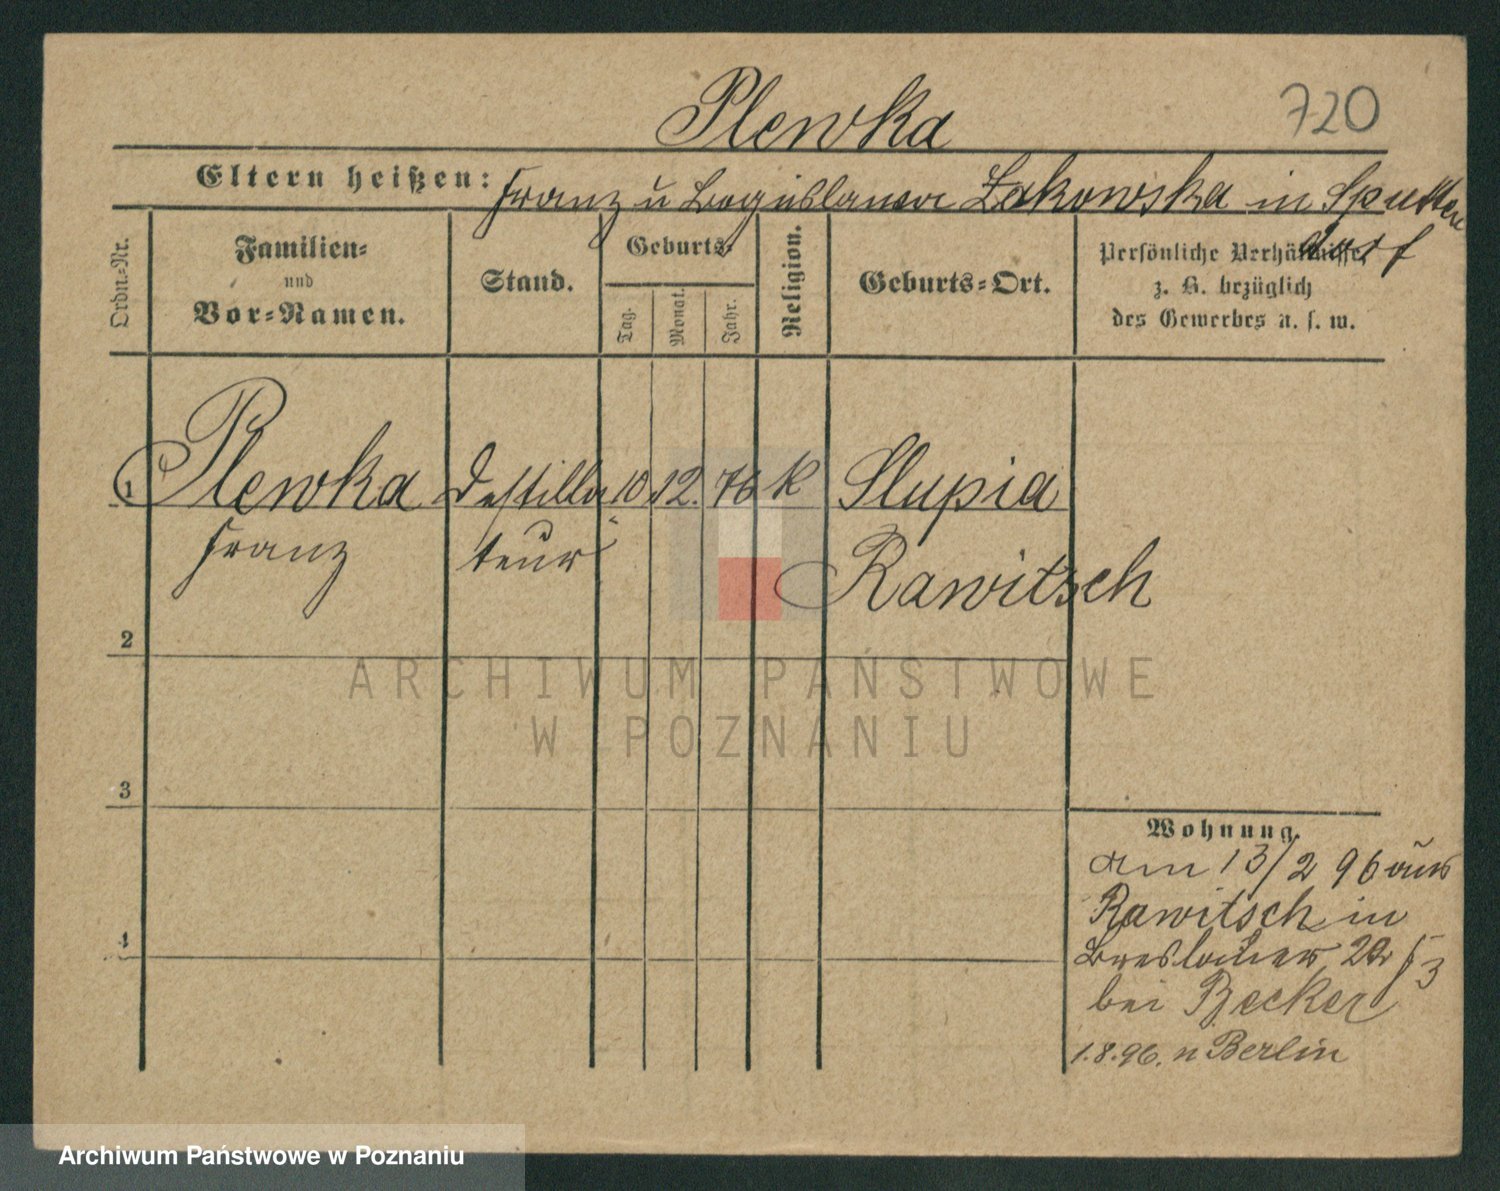 Plewka
720
Eltern heißen: Franz u Boguslawa Zakowska in
dorf
Ordn.=Nr.
Familien=
und
Vor=Namen.
Stand.
Geburts=
Tag.
Monat.
Jahr.
Religion.
Geburts=Ort.
Persönliche Verhältnisse,
z. B. bezüglich
des Gewerbes u. s. w.
1 Plewka Destilla 10 12. 76 k Slupia
Franz teur Rawitsch
2
3
4
Wohnung.
am 13/2 96 aus
Rawitsch in
Breslauer 22 3
bei Becker
1.8.96. n Berlin
ARCHIWUM PAŃSTWOWE
W POZNANIU
Archiwum Państwowe w Poznaniu